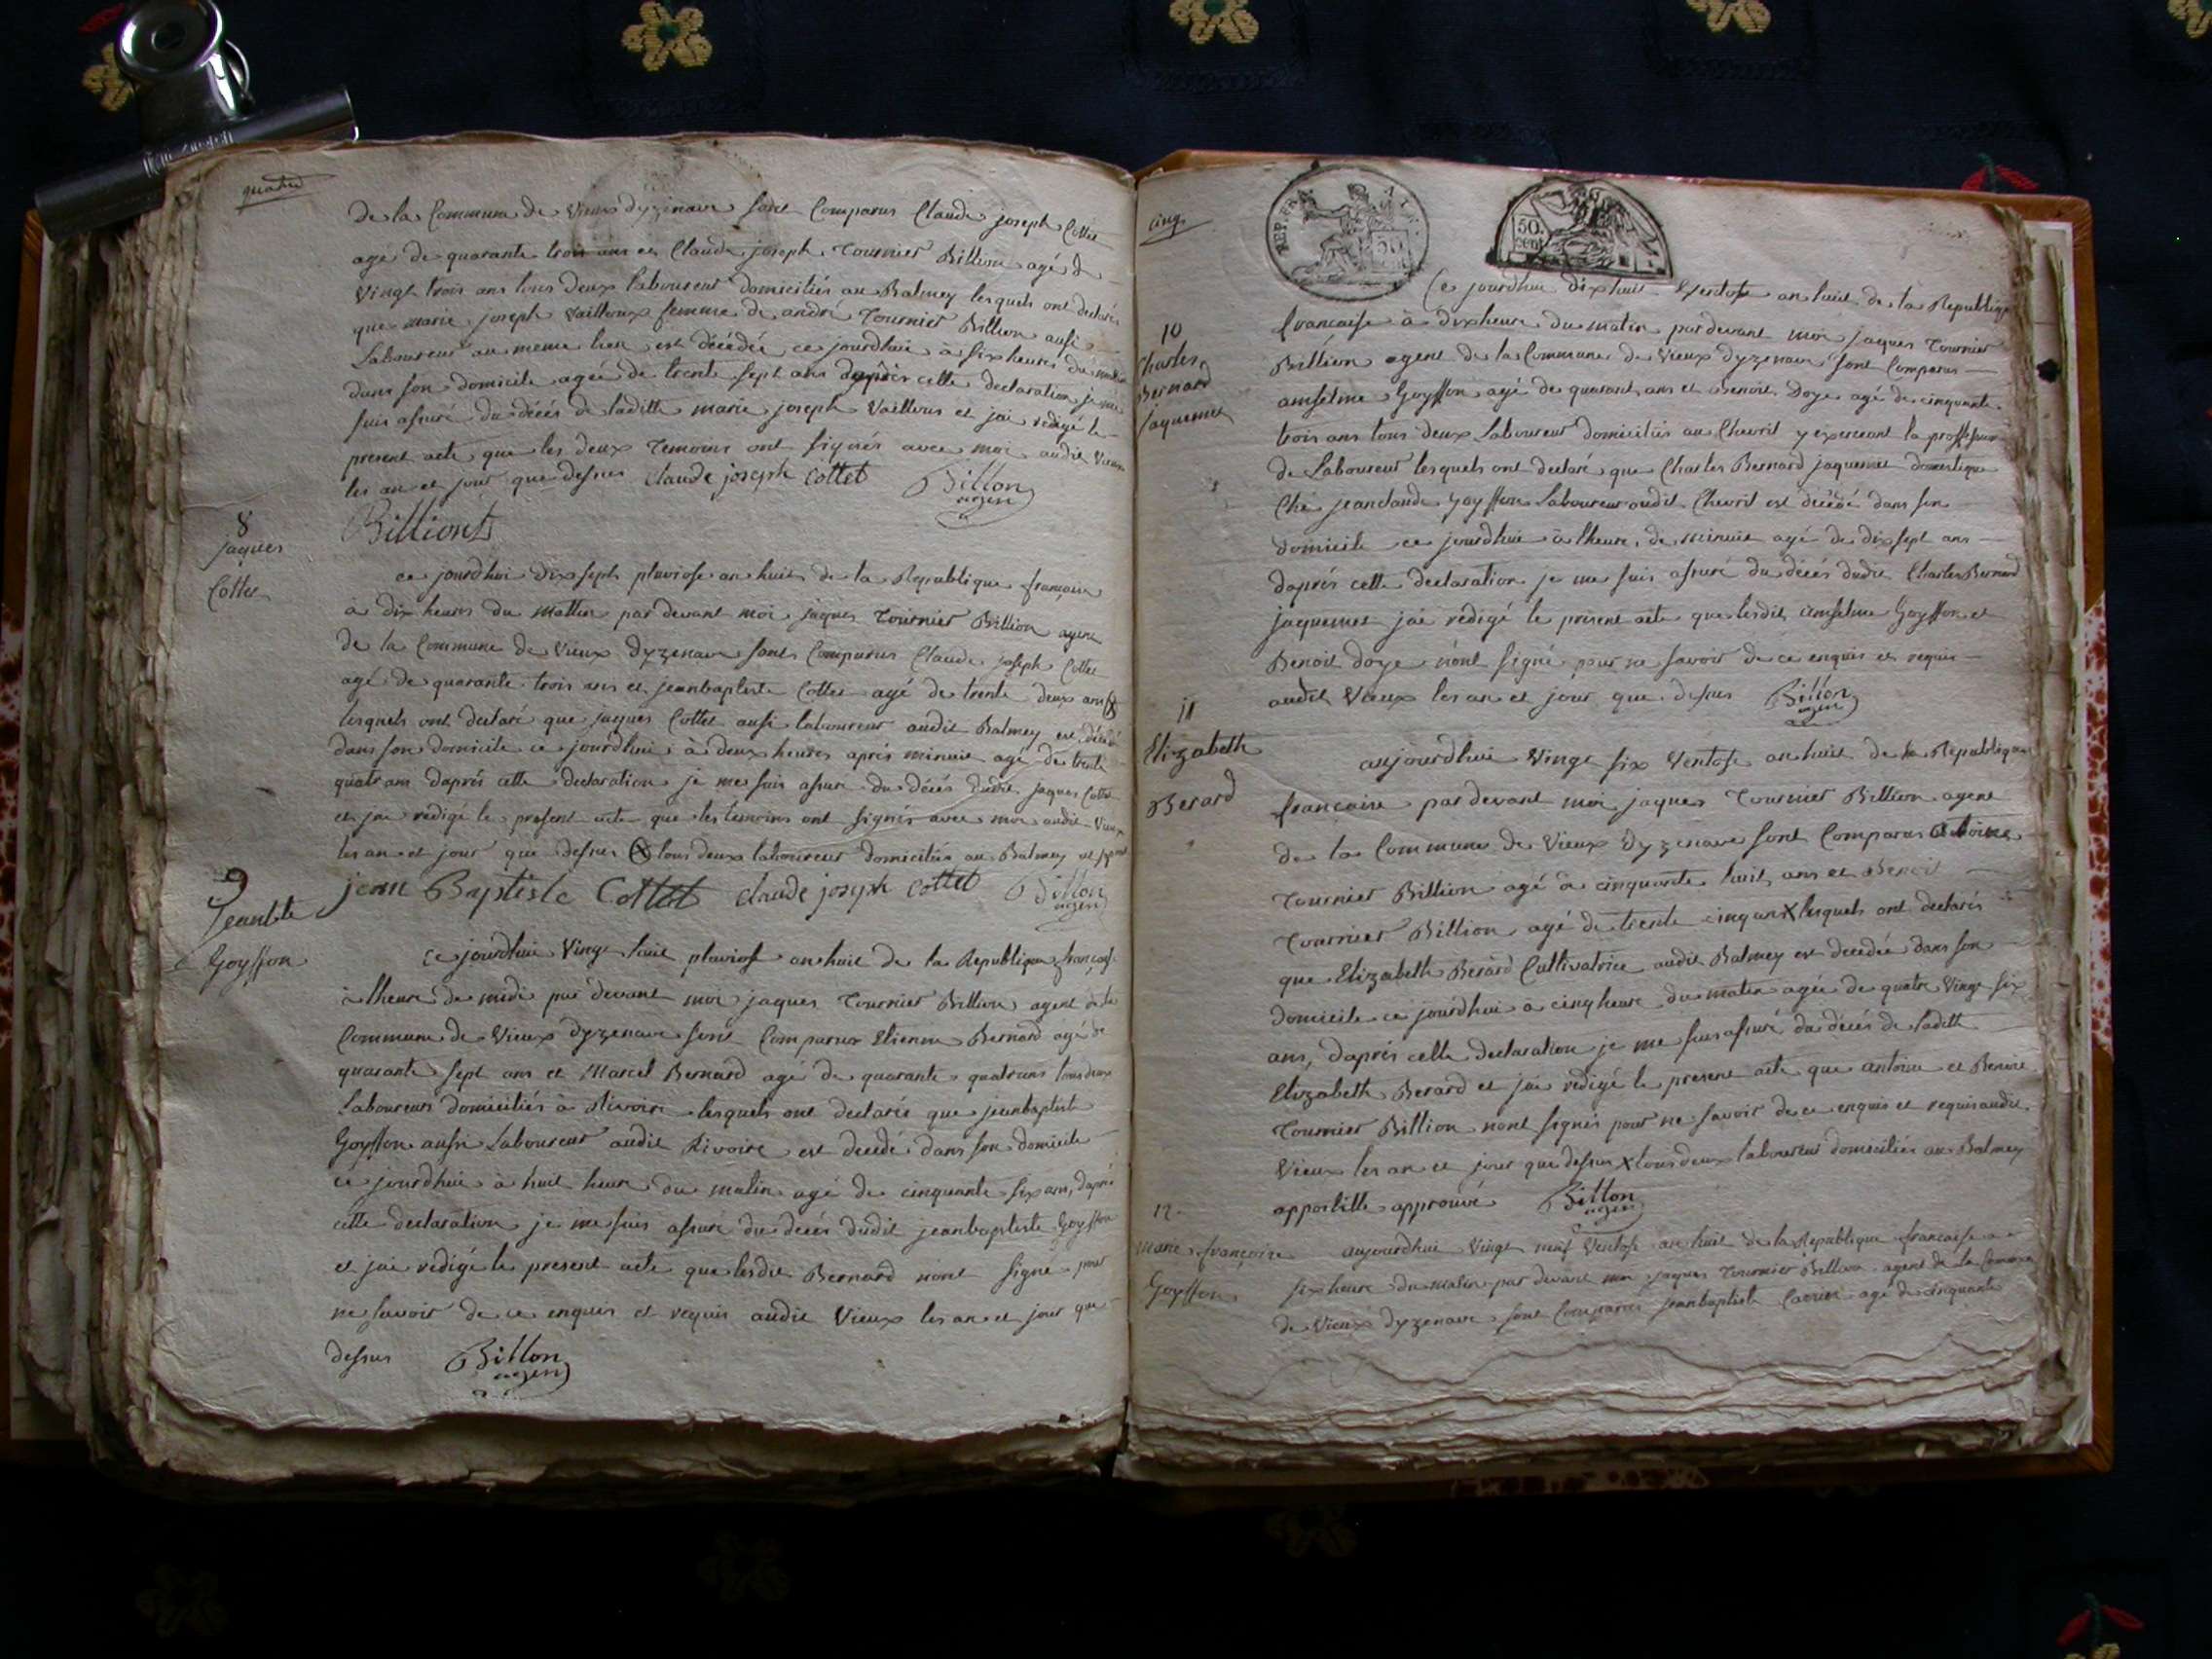 quatre
de la Commune de Vieux dyzenave sont Comparus Claude joseph Cottet
agé de quarante trois ans et Claude joseph Tournier Billion agé de
Vingt trois ans tous deux laboureur domiciliés au Balmey lesquels ont declarés
que marie joseph Vailloux femme de andré Tournier Billion aussi
Laboureur au meme lieu est décédée ce jourdhui à six heures du matin
dans son domicile agée de trente sept ans daprès cette declaration je me
suis assuré du décés de laditte marie joseph Vailloux et jai rédigé le
present acte que les deux Temoins ont signés avec moi audit Vieux
les an et jour que dessus Claude joseph Cottet Billon
agent
Billiont
8
jaques
Cottet
ce jourdhui dix sept pluviose an huit de la Republique françaice
a dix heures du mattin par devant moi jaques Tournier Billion agent
de la Commune de Vieux dyzenave sont Comparus Claude joseph Cottet
agé de quarante trois ans et jeanbaptiste Cottet agé de trente deux ans
lesquels ont declaré que jaques Cottet aussi laboureur audit Balmey est décédé
dans son domicile ce jourdhui à deux heures aprés minuit agé de trente
quatre ans daprés cette declaration je me suis assuré du décés dudit jaques Cottet
et jai rédigé le present acte que les temoins ont signés avec moi audit Vieux
les an et jour que dessus tous deux laboureur domiciliés au Balmey
jean Baptiste Cottet claude joseph cottet Billon
agent
9
Jeanbte
Goyffon
ce jourdhui Vingt huit pluviose an huit de la Republique française
à lheure de midi par devant moi jaques Tournier Billion agent de la
Commune de Vieux dyzenave sont Comparus Etienne Bernard agé de
quarante sept ans et Marcel Bernard agé de quarante quatre ans tous deux
Laboureurs domiciliés à Rivoire lesquels ont declarée que jeanbaptiste
Goyffon aussi Laboureur audit Rivoire est decedé dans son domicile
ce jourdhui à huit heure du matin agé de cinquante six ans, daprés
cette declaration je me suis assuré du décés dudit jeanbaptiste Goyffon
et jai rédigé le present acte que lesdit Bernard nont signé pour
ne savoir de ce enquis et requis audit Vieux les an et jour que
dessus Billon
agent
cinq
REP. FRA.
50.
cent
10
Charles
Bernard
jaquemet
Ce jourdhui dix huit Ventose an huit de la Republique
francaise à dix heure du matin par devant moi jaques Tournier
Billion agent de la Commune de Vieux dyzenave sont Comparus
amselme Goyffon agé de quarante ans et Benoit Doye agé de cinquante
trois ans tous deux Laboureur domiciliés au Chevril y exercant la proffession
de Laboureur lesquels ont declaré que Charles Bernard jaquemet domestique
Ché jeanclaude Goyffon Laboureur audit Chevril est décédé dans son
domicile ce jourdhui à lheure de minuit agé de dix sept ans
daprés cette declaration je me suis assuré du décés dudit Charles Bernard
jaquemet jai rédigé le présent acte que lesdit amselme Goyffon et
Benoit doye nont signé pour ne savoir de ce enquis et requis
audit Vieux les an et jour que dessus Billon
agent
11
Elizabeth
Berard
aujourdhui Vingt six Ventose an huit de la Republique
françaice par devant moi jaques Tournier Billion agent
de la Commune de Vieux dyzenave sont Comparus antoine
Tournier Billion agé de cinquante huit ans et Benoit
Tournier Billion agé de trente cinq ans X lesquels ont declarés
que Elizabeth Berard Cultivatrice audit Balmey est decedée dans son
domicile ce jourdhui a cinq heure du matin agée de quatre Vingt six
ans, daprés cette declaration je me suis assuré du décés de laditte
Elizabeth Berard et jai rédigé le present acte que antoine et Benoit
Tournier Billion nont signés pour ne savoir de ce enquis et requis audit
Vieux les an et jour que dessus X tous deux laboureurs domiciliés au Balmey
appostille approuvé Billon
agent
12
marie françoise
Goyffon
aujourdhui Vingt neuf Ventose an huit de la Republique francaise a
six heure du matin par devant moi jaques Tournier Billion agent de la Commune
de Vieux dyzenave sont Comparus jeanbaptiste agé de cinquante